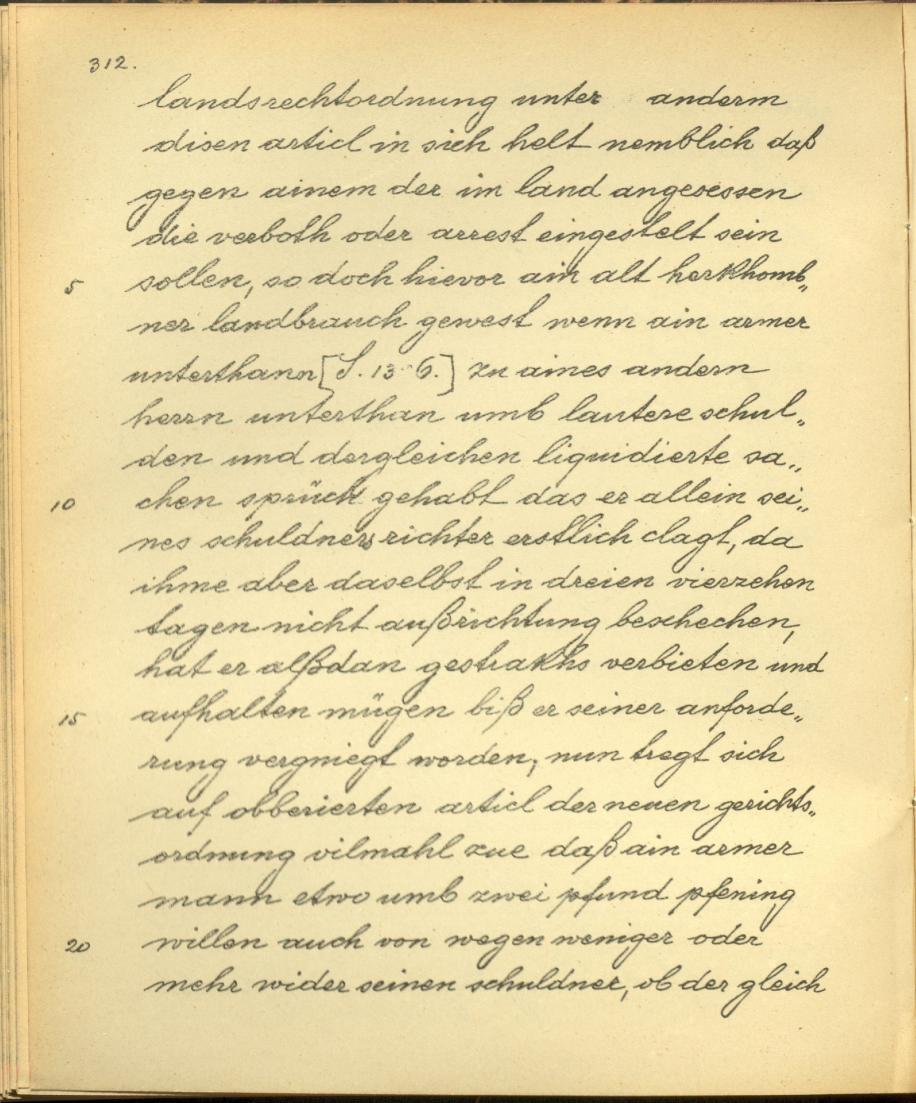 312.
landsrechtordnung unter anderm
disen articl in sich helt nemblich daß
gegen ainem der im land angesessen
die verboth oder arrest eingestelt sein
5 sollen, so doch hievor ain alt herkhomb„
ner landbrauch gewest wenn ain armer
unterthann [S. 136.] zu aines andern
herrn unterthan umb lautere schul„
den und dergleichen liquidierte sa„
10 chen sprüch gehabt das er allein sei„
nes schuldners richter erstlich clagt, da
ihme aber daselbst in dreien vierzehen
tagen nicht außrichtung beschechen,
hat er alßdan gestrakhs verbieten und
15 aufhalten mügen biß er seiner anforde„
rung vergniegt worden; nun tregt sich
auf obberierten articl der neuen gerichts„
ordnung vilmahl zue daß ain armer
mann etwo umb zwei pfund pfening
20 willen auch von wegen weniger oder
mehr wider seinen schuldner, ob der gleich